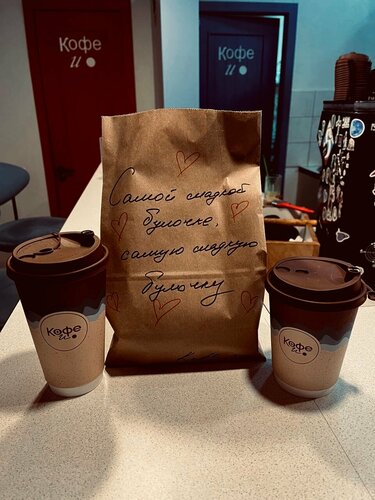 Кофе
и
Кофе
и
Самой сладкой
булочке,
самую сладкую
булочку
Кофе
и
Кофе
и